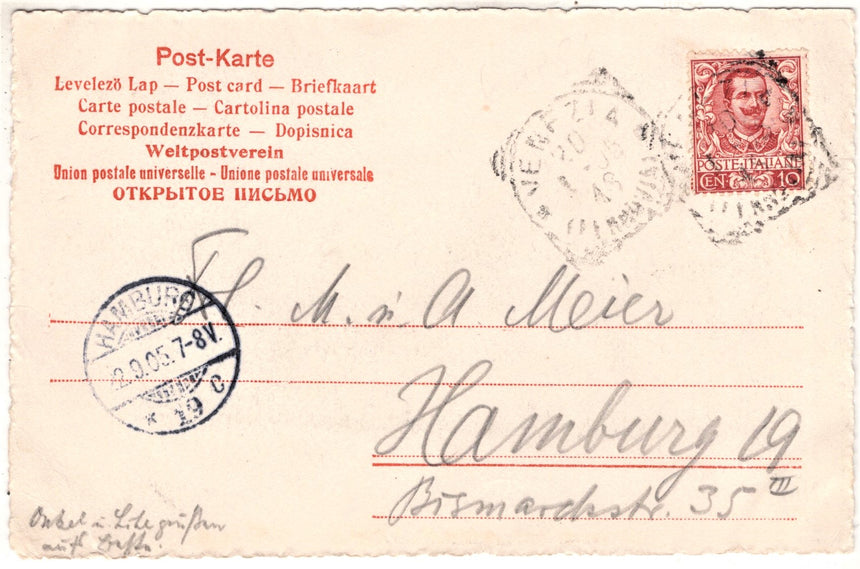 Post-Karte
Levelező Lap — Post card — Briefkaart
Carte postale — Cartolina postale
Correspondenzkarte — Dopisnica
Weltpostverein
Union postale universelle - Unione postale universale
ОТКРЫТОЕ ПИСЬМО
VENEZIA
(FERROVIA)
POSTE ITALIANE
CEN 10
HAMBURG
2.9.05.7-8V.
* 19 C
Fl. M. u. A. Meier
Hamburg 19
Bismarckstr. 35 III
Onkel u. grüßen